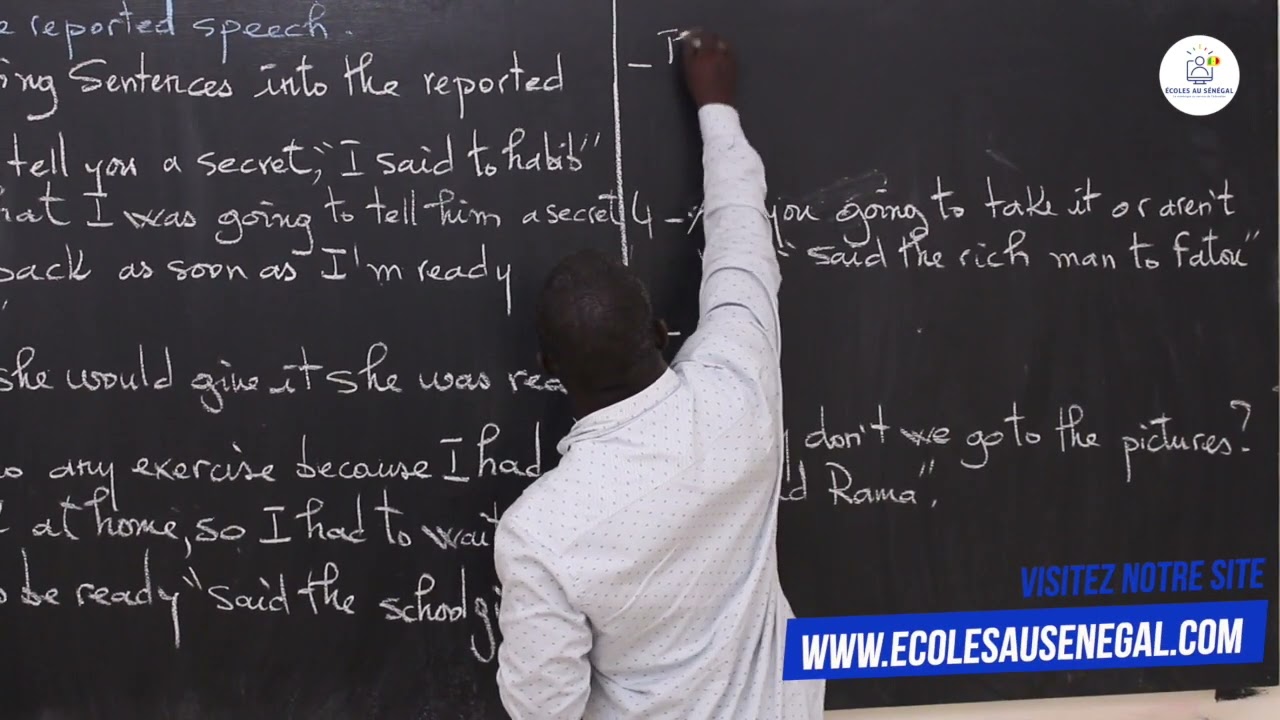 e reported speech.
ing Sentences into the reported
tell you a secret," I said to habib"
hat I was going to tell him a secret
back as soon as I'm ready
"
she would give it she was rea
o any exercise because I had
at home, so I had to wait
o be ready" said the schoolgi
_
4 - you going to take it or aren't
" said the rich man to Fatou"
-
don't we go to the pictures?
d Rama".
ÉCOLES AU SÉNÉGAL
VISITEZ NOTRE SITE
WWW.ECOLESAUSENEGAL.COM